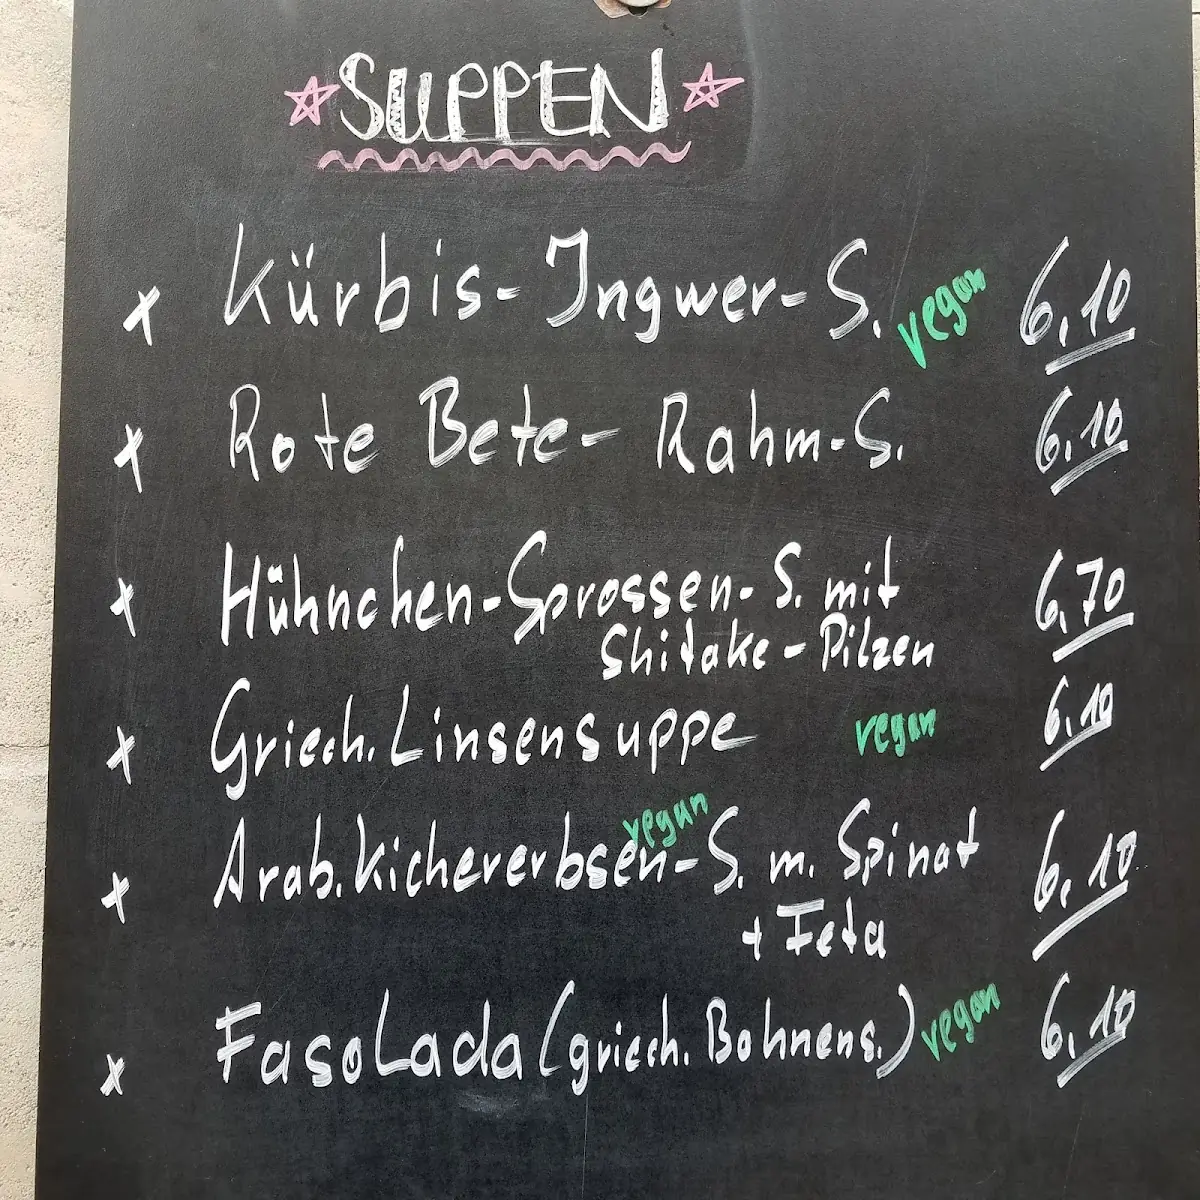 SUPPEN
x Kürbis-Ingwer-S. vegan 6,10
x Rote Bete-Rahm-S. 6,10
x Hühnchen-Sprossen-S. mit 6,70
Shitake-Pilzen
x Griech. Linsensuppe vegan 6,10
vegan
x Arab. Kichererbsen-S. m. Spinat 6,10
+ Feta
x Fasolada (griech. Bohnens.) vegan 6,10